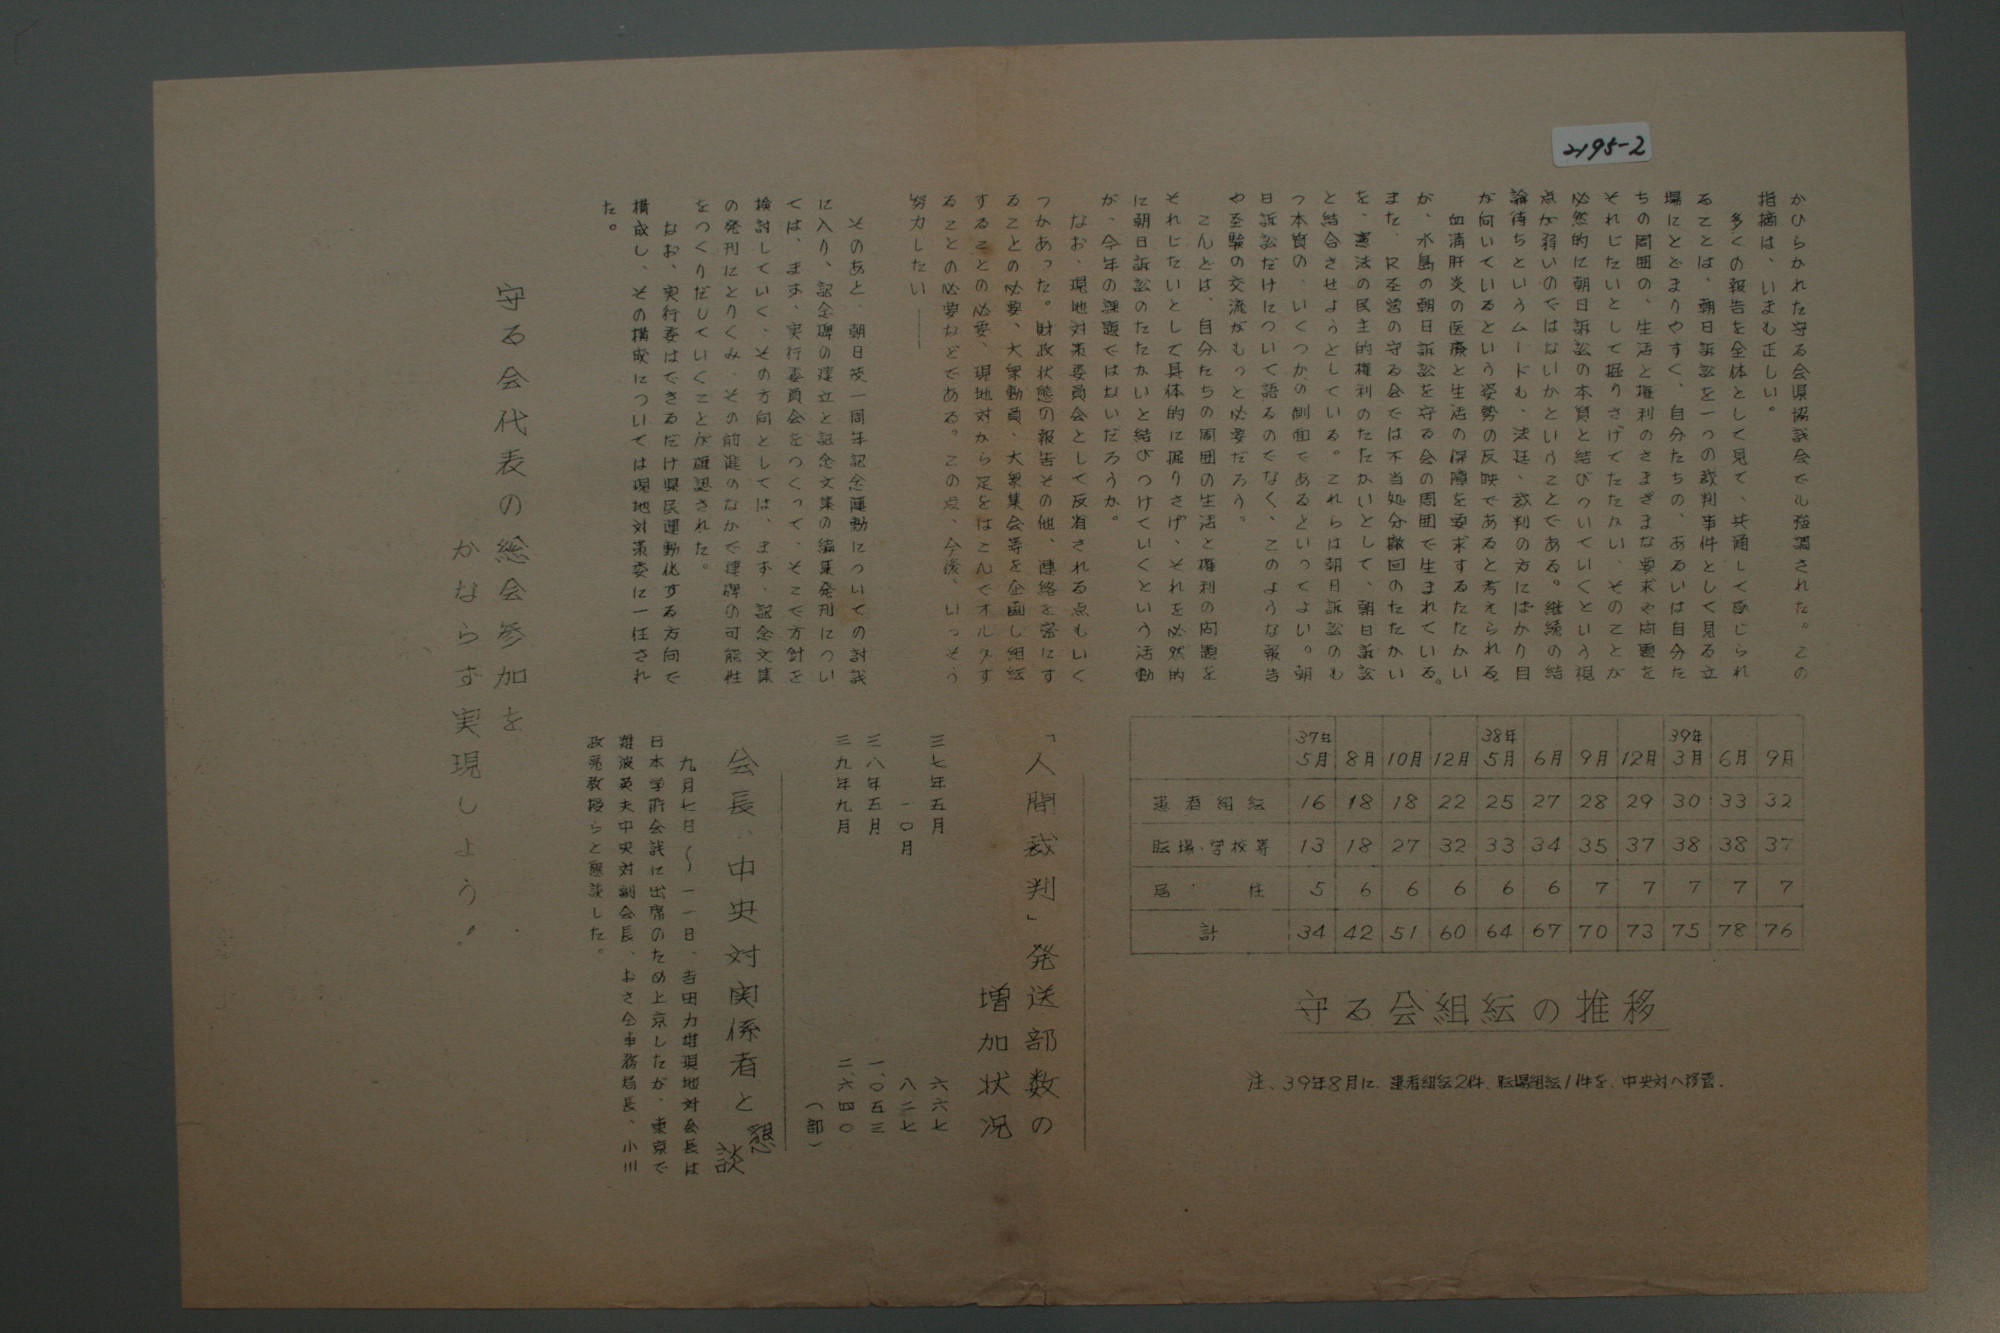 2195-2
かひらかれた守る会県協議会でも強調された。この
指摘は、いまも正しい。
多くの報告を全体として見て、共通して感じられ
ることは、朝日訴訟を一つの裁判事件として見る立
場にとどまりやすく、自分たちの、あるいは自分た
ちの周囲の、生活と権利のさまざまな要求や問題を
それじたいとして掘りさげてたたかい、そのことが
必然的に朝日訴訟の本質と結びついていくという視
点が弱いのではないかということである。継続の結
論待ちというムードも、法廷、裁判の方にばかり目
が向いているという姿勢の反映であると考えられる。
血清肝炎の医療と生活の保障を要求するたたかい
が、水島の朝日訴訟を守る会の周囲で生まれている。
また、R至営の守る会では不当処分撤回のたたかい
を、憲法の民主的権利のたたかいとして、朝日訴訟
と結合させようとしている。これらは朝日訴訟のも
つ本質の、いくつかの側面であるといってよい。朝
日訴訟だけについて語るのでなく、このような報告
や至験の交流がもっと必要だろう。
こんどは、自分たちの周囲の生活と権利の問題を
それじたいとして具体的に掘りさげ、それを必然的
に朝日訴訟のたたかいと結びつけていくという活動
が、今年の課題ではないだろうか。
なお、現地対策委員会として反省される点もいく
つかあった。財政状態の報告その他、連絡を密にす
ることの必要、大衆動員、大衆集会等を企画し組紜
することの必要、現地対から足をはこんでオルグす
ることの必要などである。この点、今後、いっそう
努力したい ――
そのあと、朝日茂一周年記念運動についての討議
に入り、記念碑の建立と記念文集の編集発刊につい
ては、まず、実行委員会をつくって、そこで方針を
検討していく、その方向としては、まず、記念文集
の発刊にとりくみ、その前進のなかで建碑の可能性
をつくりだしていくことが確認された。
なお、実行委はできるだけ県民運動化する方向で
構成し、その構成については現地対策委に一任され
た。
守る会代表の総会参加を
かならず実現しよう!
37年5月 8月 10月 12月 38年5月 6月 9月 12月 39年3月 6月 9月
患者組紜 16 18 18 22 25 27 28 29 30 33 32
職場、学校等 13 18 27 32 33 34 35 37 38 38 37
居住 5 6 6 6 6 6 7 7 7 7 7
計 34 42 51 60 64 67 70 73 75 78 76
守る会組紜の推移
注、39年8月に、患者組紜2件、職場組紜1件を、中央対へ移管.
「人間裁判」発送部数の
増加状況
三七年五月 六六七
一〇月 八二七
三八年五月 一、〇五三
三九年九月 二、六四〇
(部)
会長、中央対関係者と懇談
九月七日〜一一日、吉田力雄現地対会長は
日本学術会議に出席のため上京したが、東京で
難波英夫中央対副会長、おさ全事務局長、小川
政亮教授らと懇談した。